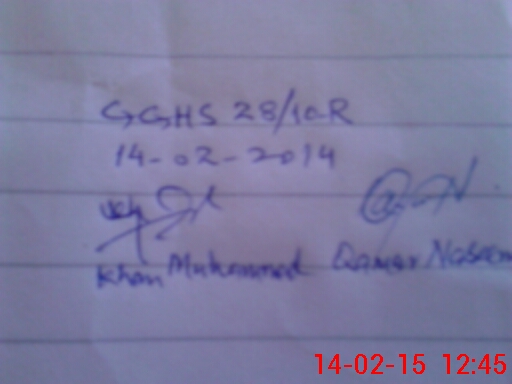 GGHS 28/10-R
14-02-2014
Khan Muhammad Qamar Naseem
14-02-15 12:45